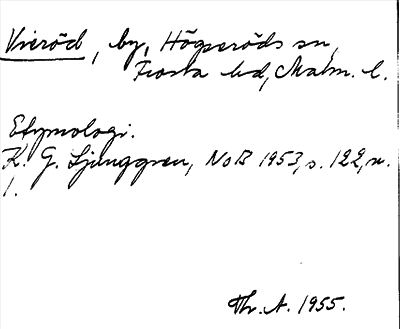 Vieröd, by, Högseröds sn,
Frosta hd, Malm. l.
Etymologi.
K. G. Ljunggren, NoB 1953, s. 122, n.
1.
Th. A. 1955.